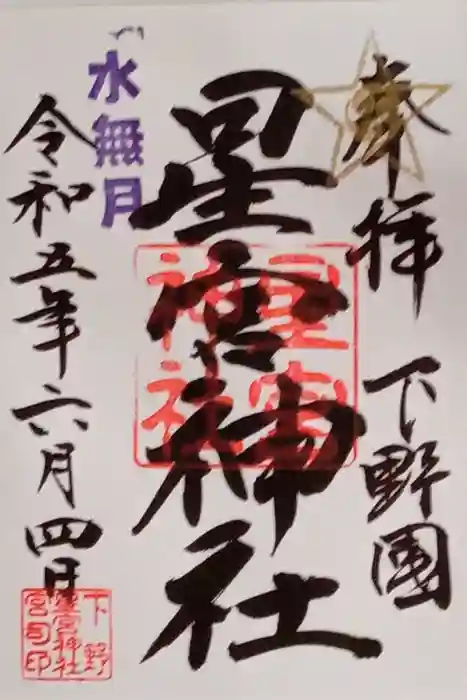 奉拝 下野國
星宮神社
星宮
神社
水無月
令和五年六月四日
下野
星宮神社
宮司印